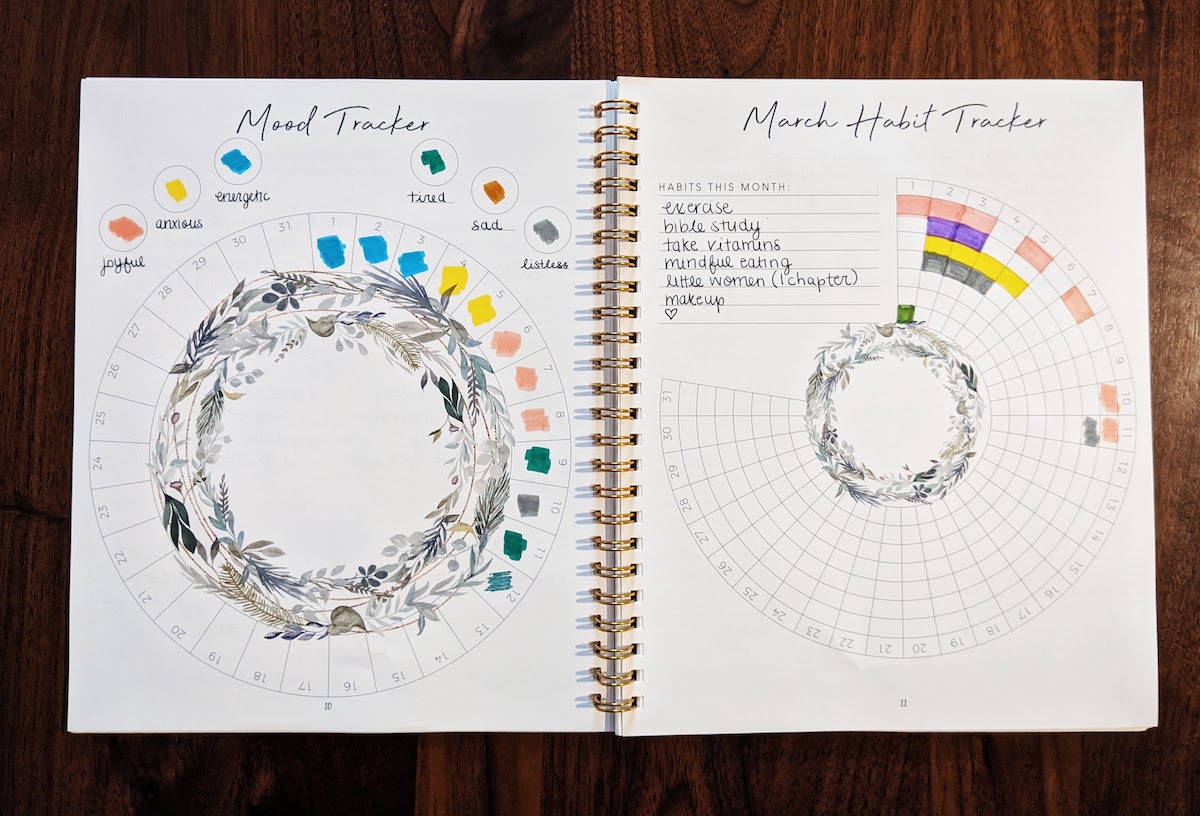 Mood Tracker
energetic
anxious
joyful
tired
sad
listless
1
2
3
4
5
6
7
8
9
10
11
12
13
14
15
16
17
18
19
20
21
22
23
24
25
26
27
28
29
30
31
10
March Habit Tracker
HABITS THIS MONTH:
exercise
bible study
take vitamins
mindful eating
little women (1 chapter)
makeup
♡
1
2
3
4
5
6
7
8
9
10
11
12
13
14
15
16
17
18
19
20
21
22
23
24
25
26
27
28
29
30
31
11